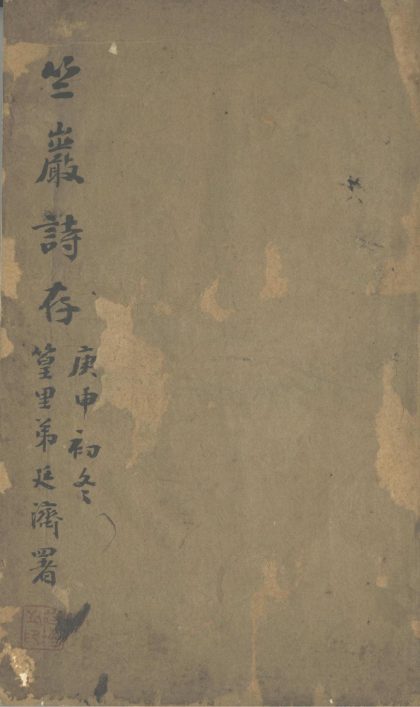 竺巖詩存
庚申初冬
篁里弟廷濟署